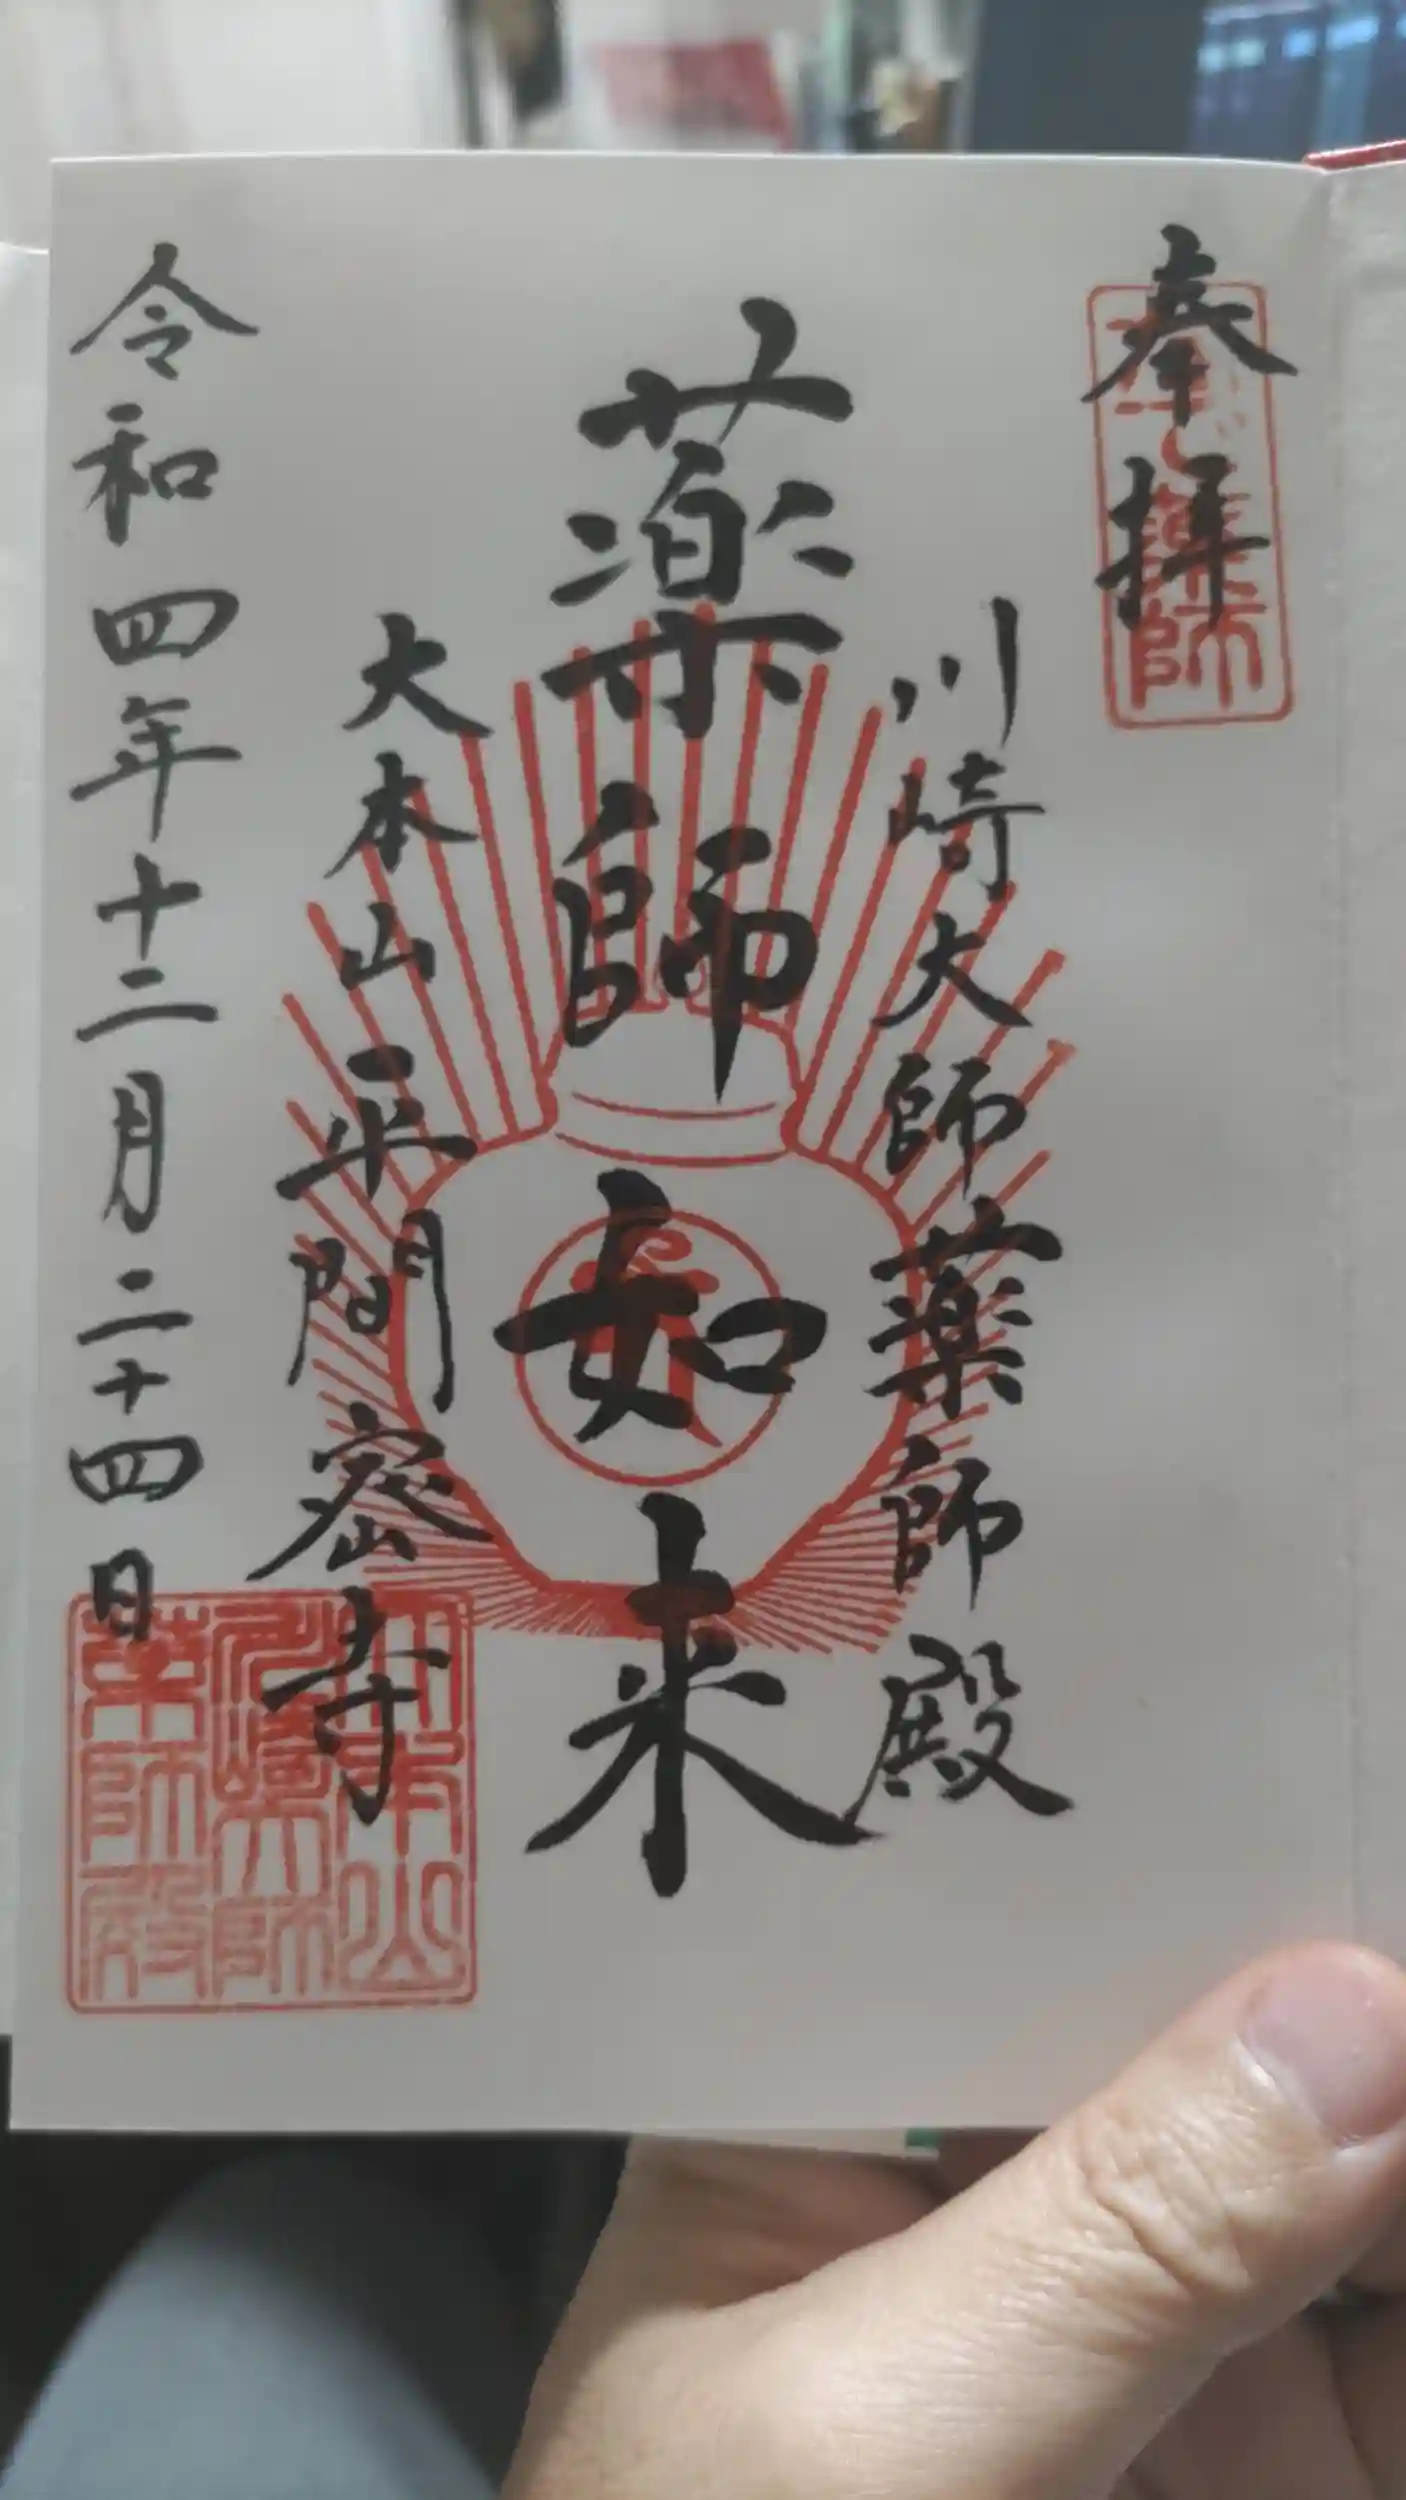 奉拝
川崎大師薬師殿
薬師如来
大本山平間密寺
令和四年十二月二十四日
大本山
川崎大師
薬師殿